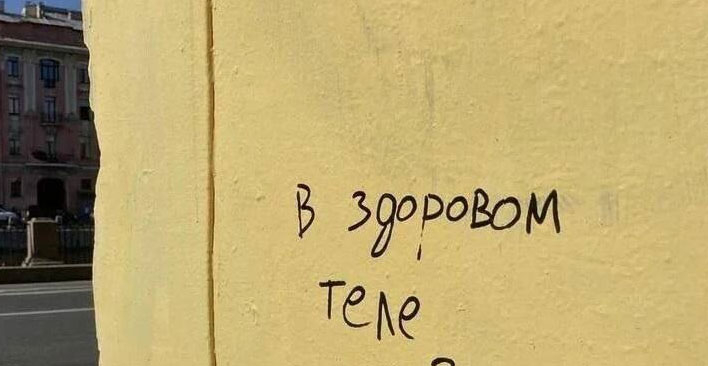 В здоровом
теле